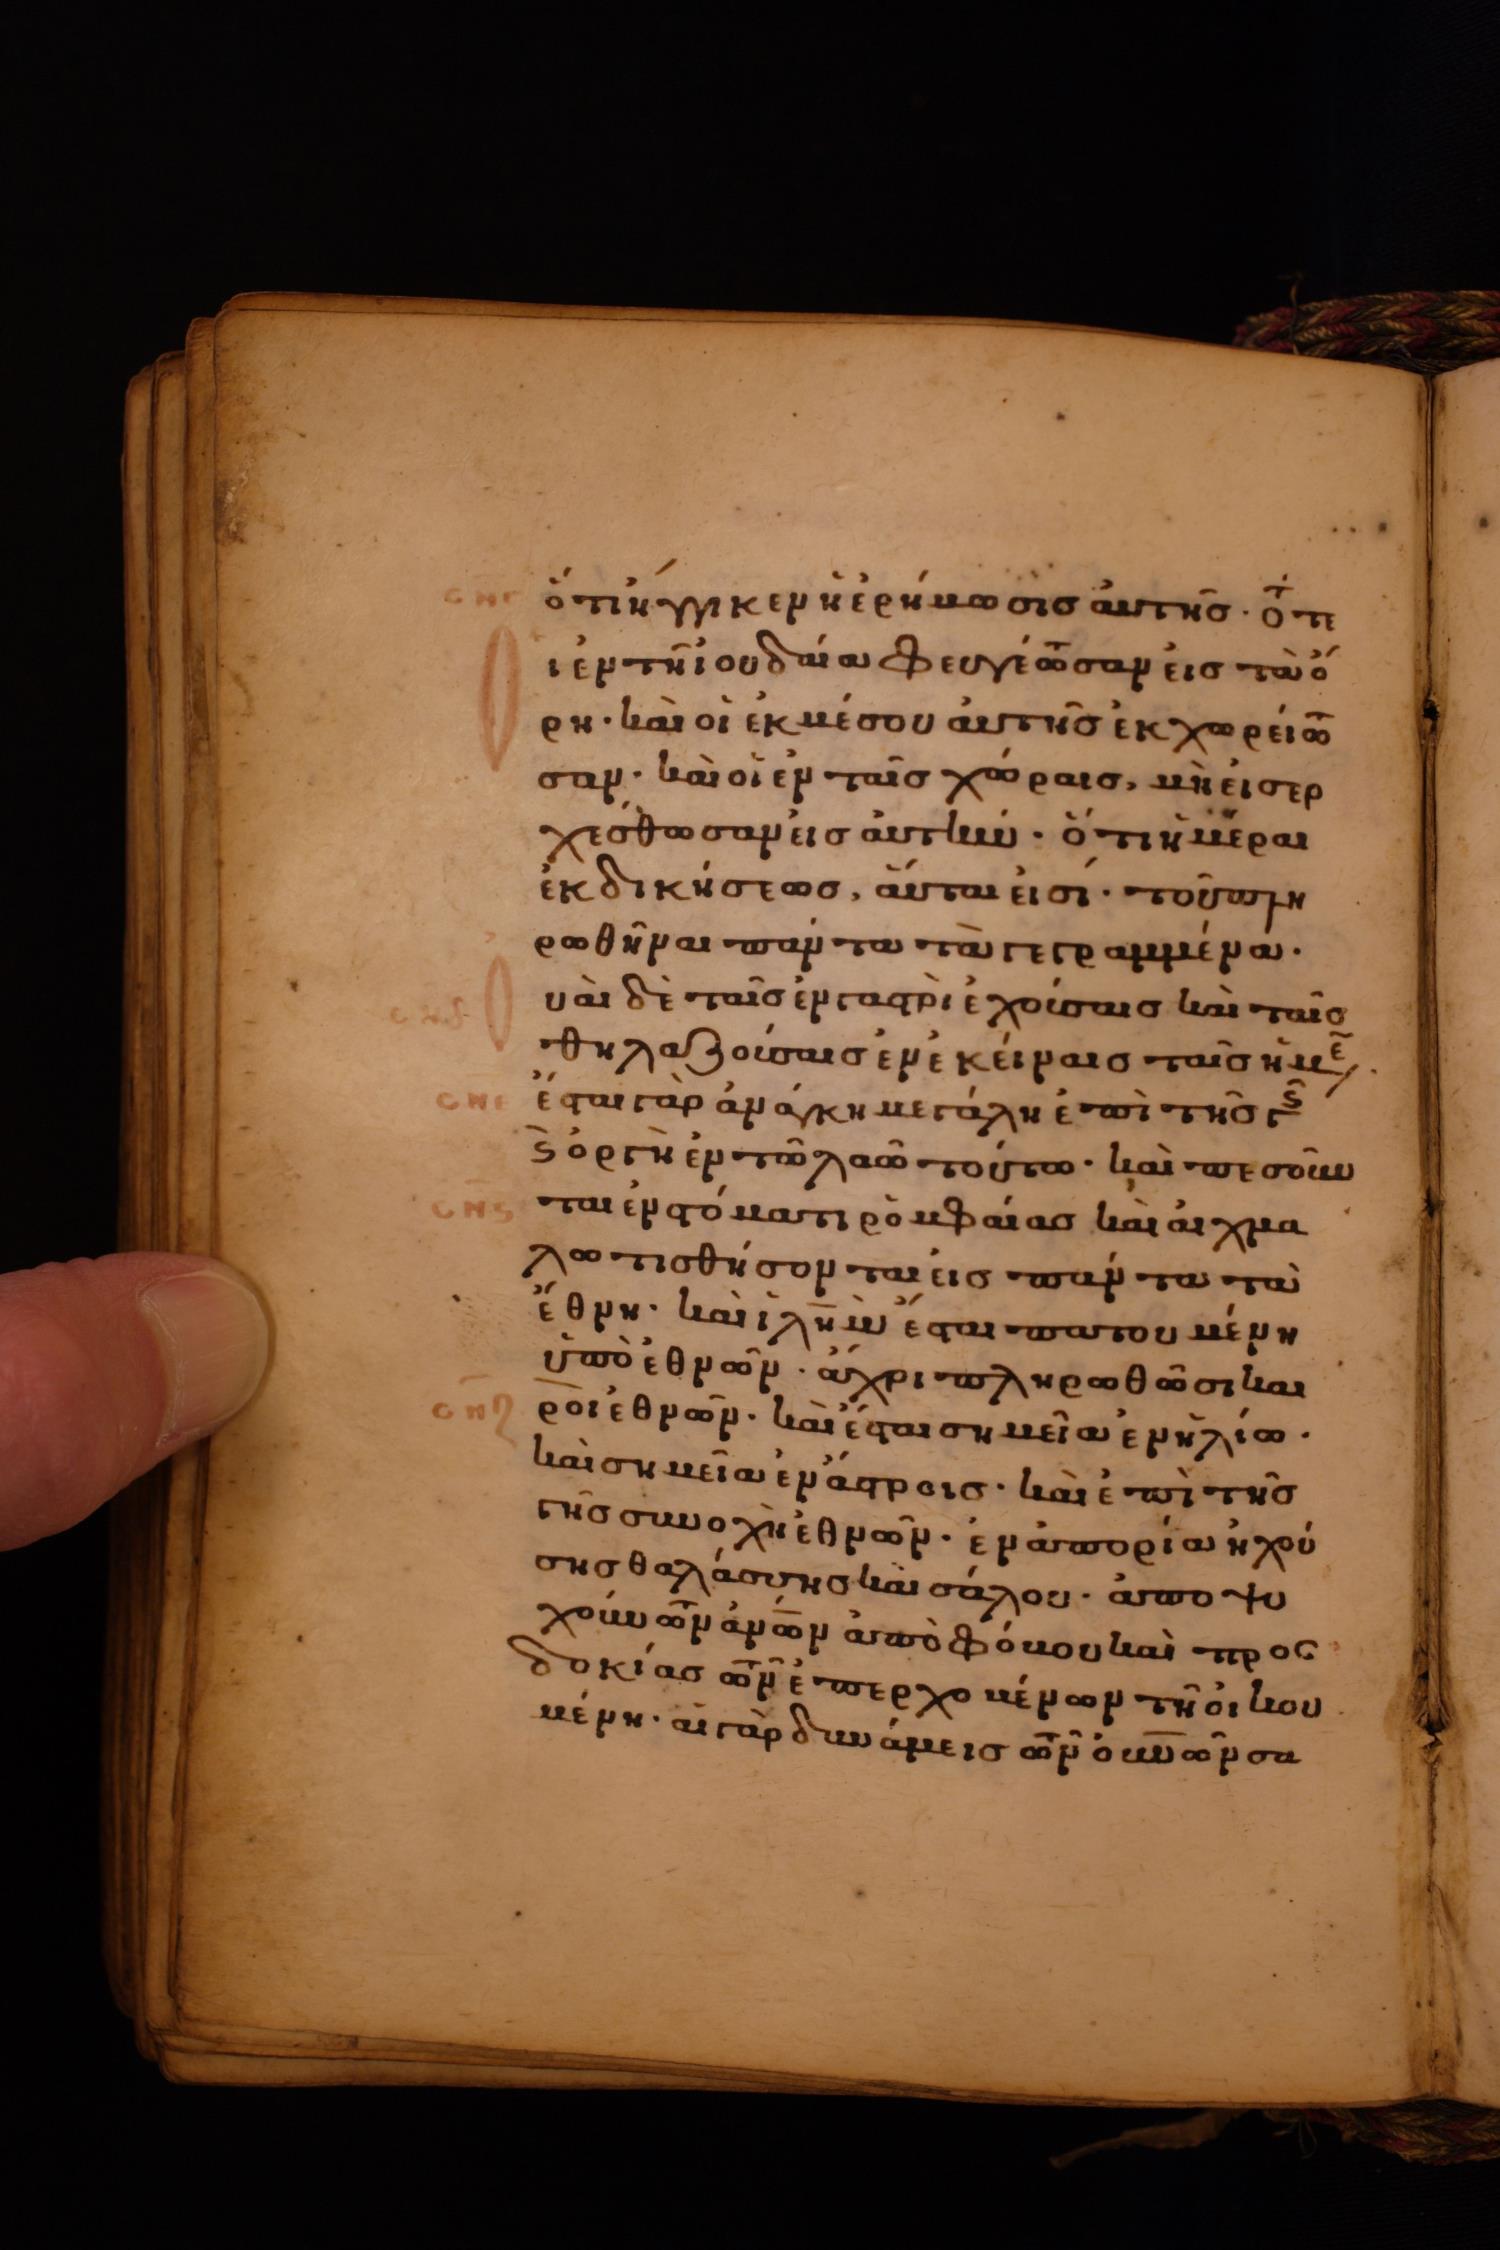 ὅτι ἤγγικεν ἡ ἐρήμωσις αὐτῆς · ὅτ τε
ι ἐν τῆ ἰουδαία φευγέτωσαν εἰς τὰ ὄ
ρη · καὶ οἱ ἐκ μέσου αὐτῆς ἐκχωρείτω
σαν · καὶ οἱ ἐν ταῖς χώραις, μὴ εἰσερ
χέσθωσαν εἰς αὐτήν · ὅτι ἡμέραι
ἐκδικήσεως, αὗταί εἰσί · τοῦ πλη
ρωθῆναι πάντα τὰ γεγραμμένα ·
υαὶ δὲ ταῖς ἐν γαστρὶ ἐχούσαις καὶ ταῖς
σνδ
θηλαζούσαις ἐν ἐκείναις ταῖς ἡμε
σνε ἔσται γὰρ ἀνάγκη μεγάλη ἐπὶ τῆς γς
ϛ ὀργὴ ἐν τῶ λαῶ τούτω · καὶ πεσοῦν
σνϛ ται ἐν στόματι ῥομφαίας καὶ αἰχμα
λωτισθήσονται εἰς πάντα τὰ
ἔθνη · καὶ ἰλημ ἔσται πατουμένη
ὑπὸ ἐθνῶν · ἄχρι πληρωθῶσι και
σνζ ροὶ ἐθνῶν · καὶ ἔσται σημεῖα ἐν ἡλίω ·
καὶ σημεῖα ἐν ἄστροις · καὶ ἐπὶ τῆς
γῆς συνοχὴ ἐθνῶν · ἐν ἀπορία ἠχού
σης θαλάσσης καὶ σάλου · ἀποψυ
χούντων ἀνων ἀπὸ φόβου καὶ προσ
δοκίας τῶν ἐπερχομένων τῆ οἰκου
μένη · αἱ γὰρ δυνάμεις τῶν ουνῶν σα